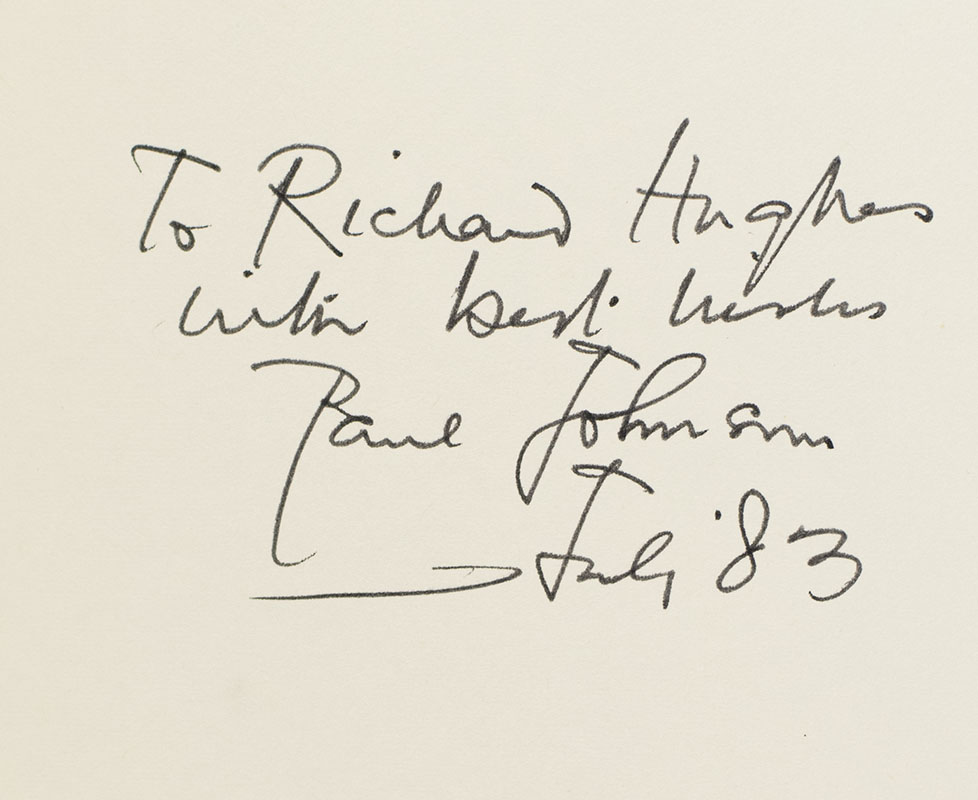 To Richard Hughes
with best wishes
Paul Johnson
July '83